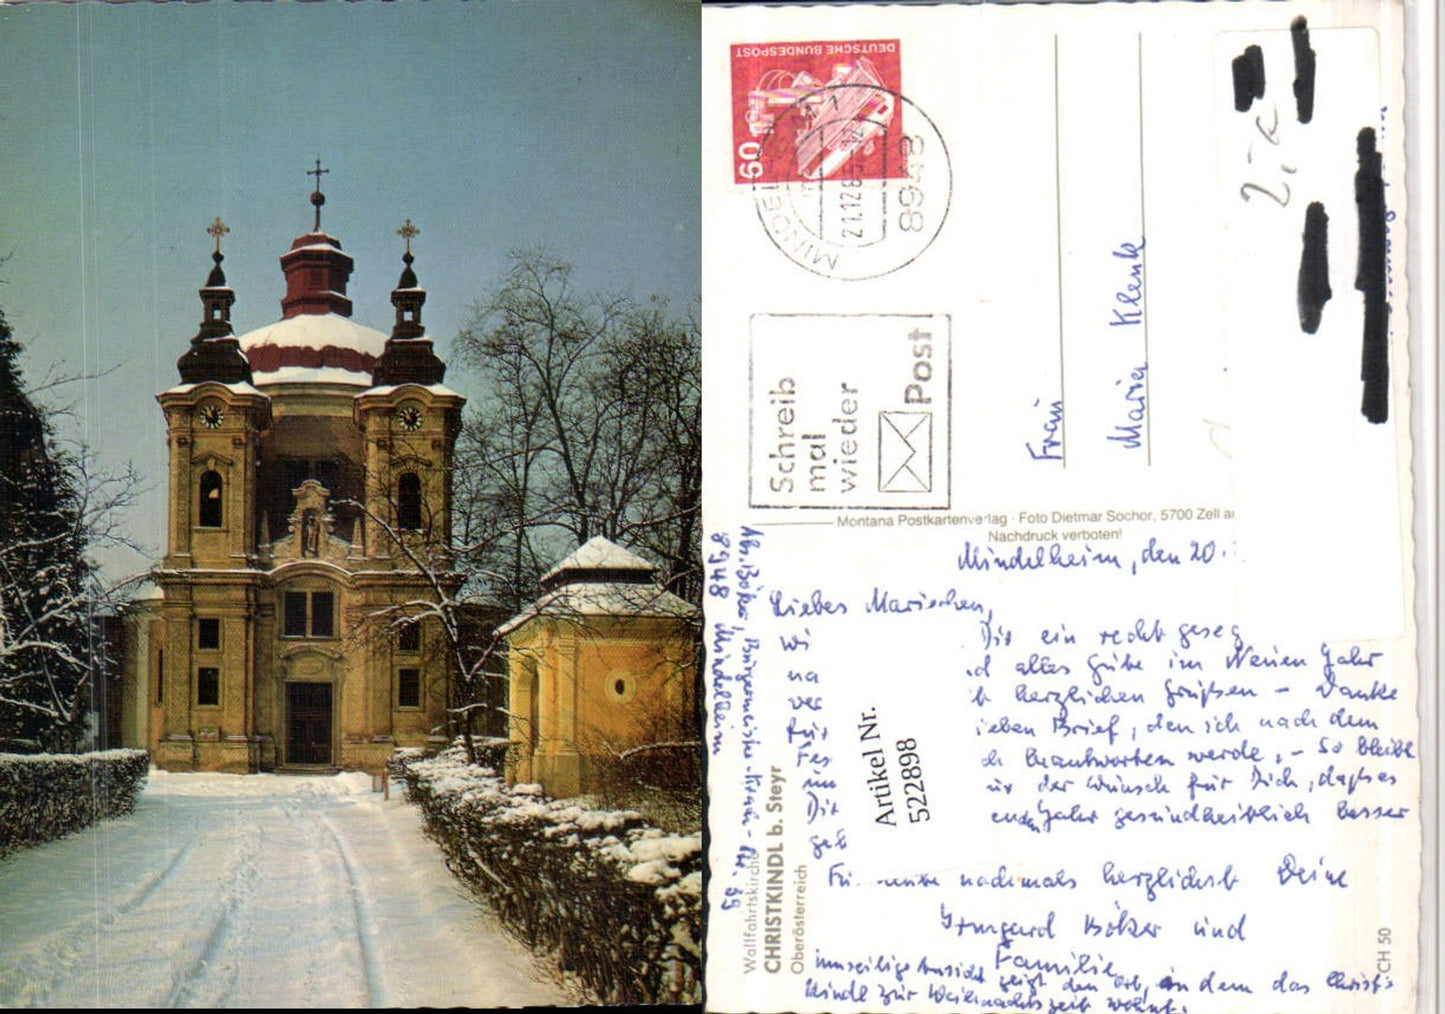 DEUTSCHE BUNDESPOST
60
MINDELHEIM 1
21.12.8
8948
Schreib
mal
wieder
Post
2,-€
Frau
Maria Klenk
Montana Postkartenverlag · Foto Dietmar Sochor, 5700 Zell a
Nachdruck verboten!
Mindelheim, den 20.
Liebes Mariechen,
wi Dir ein recht geseg
na d alles Gute im Neuen Jahr
ver herzlichen Grüßen - Danke
für ieben Brief, den ich nach dem
Fes ch beantworten werde, - So bleibt
im ur der Wunsch für Dich, daß es
Dir Jahr gesundheitlich besser
geh
Artikel Nr.
522898
Für heute nochmals herzlichst Deine
Irmgard Böker und
Familie
Umseitige Ansicht zeigt den Ort, in dem das Christ-
kindl zur Weihnachtszeit wohnt.
Abs. Böker, Bürgermeister-Krach- Str. 39
8948 Mindelheim
Wallfahrtskirche
CHRISTKINDL b. Steyr
Oberösterreich
CH 50